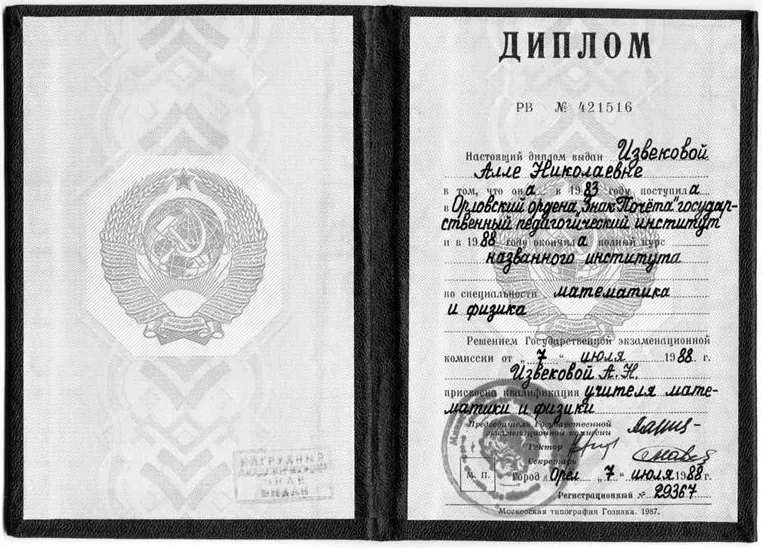 ДИПЛОМ
РВ № 421516
Настоящий диплом выдан Извековой
Алле Николаевне
в том, что она в 1983 году поступила
в Орловский ордена „Знак Почёта" государ-
ственный педагогический институт
и в 1988 году окончила полный курс
названного института
по специальности математика
и физика
Решением Государственной экзаменационной
комиссии от „7" июля 1988 г.
Извековой А.Н.
присвоена квалификация учителя мате-
матики и физики
Председатель Государственной
экзаменационной комиссии
Ректор
Секретарь
М. П. Город Орел „7" июля 1988 г.
Регистрационный № 29367
Московская типография Гознака. 1987.
НАГРУДНЫЙ
ЗНАК
ВЫДАН